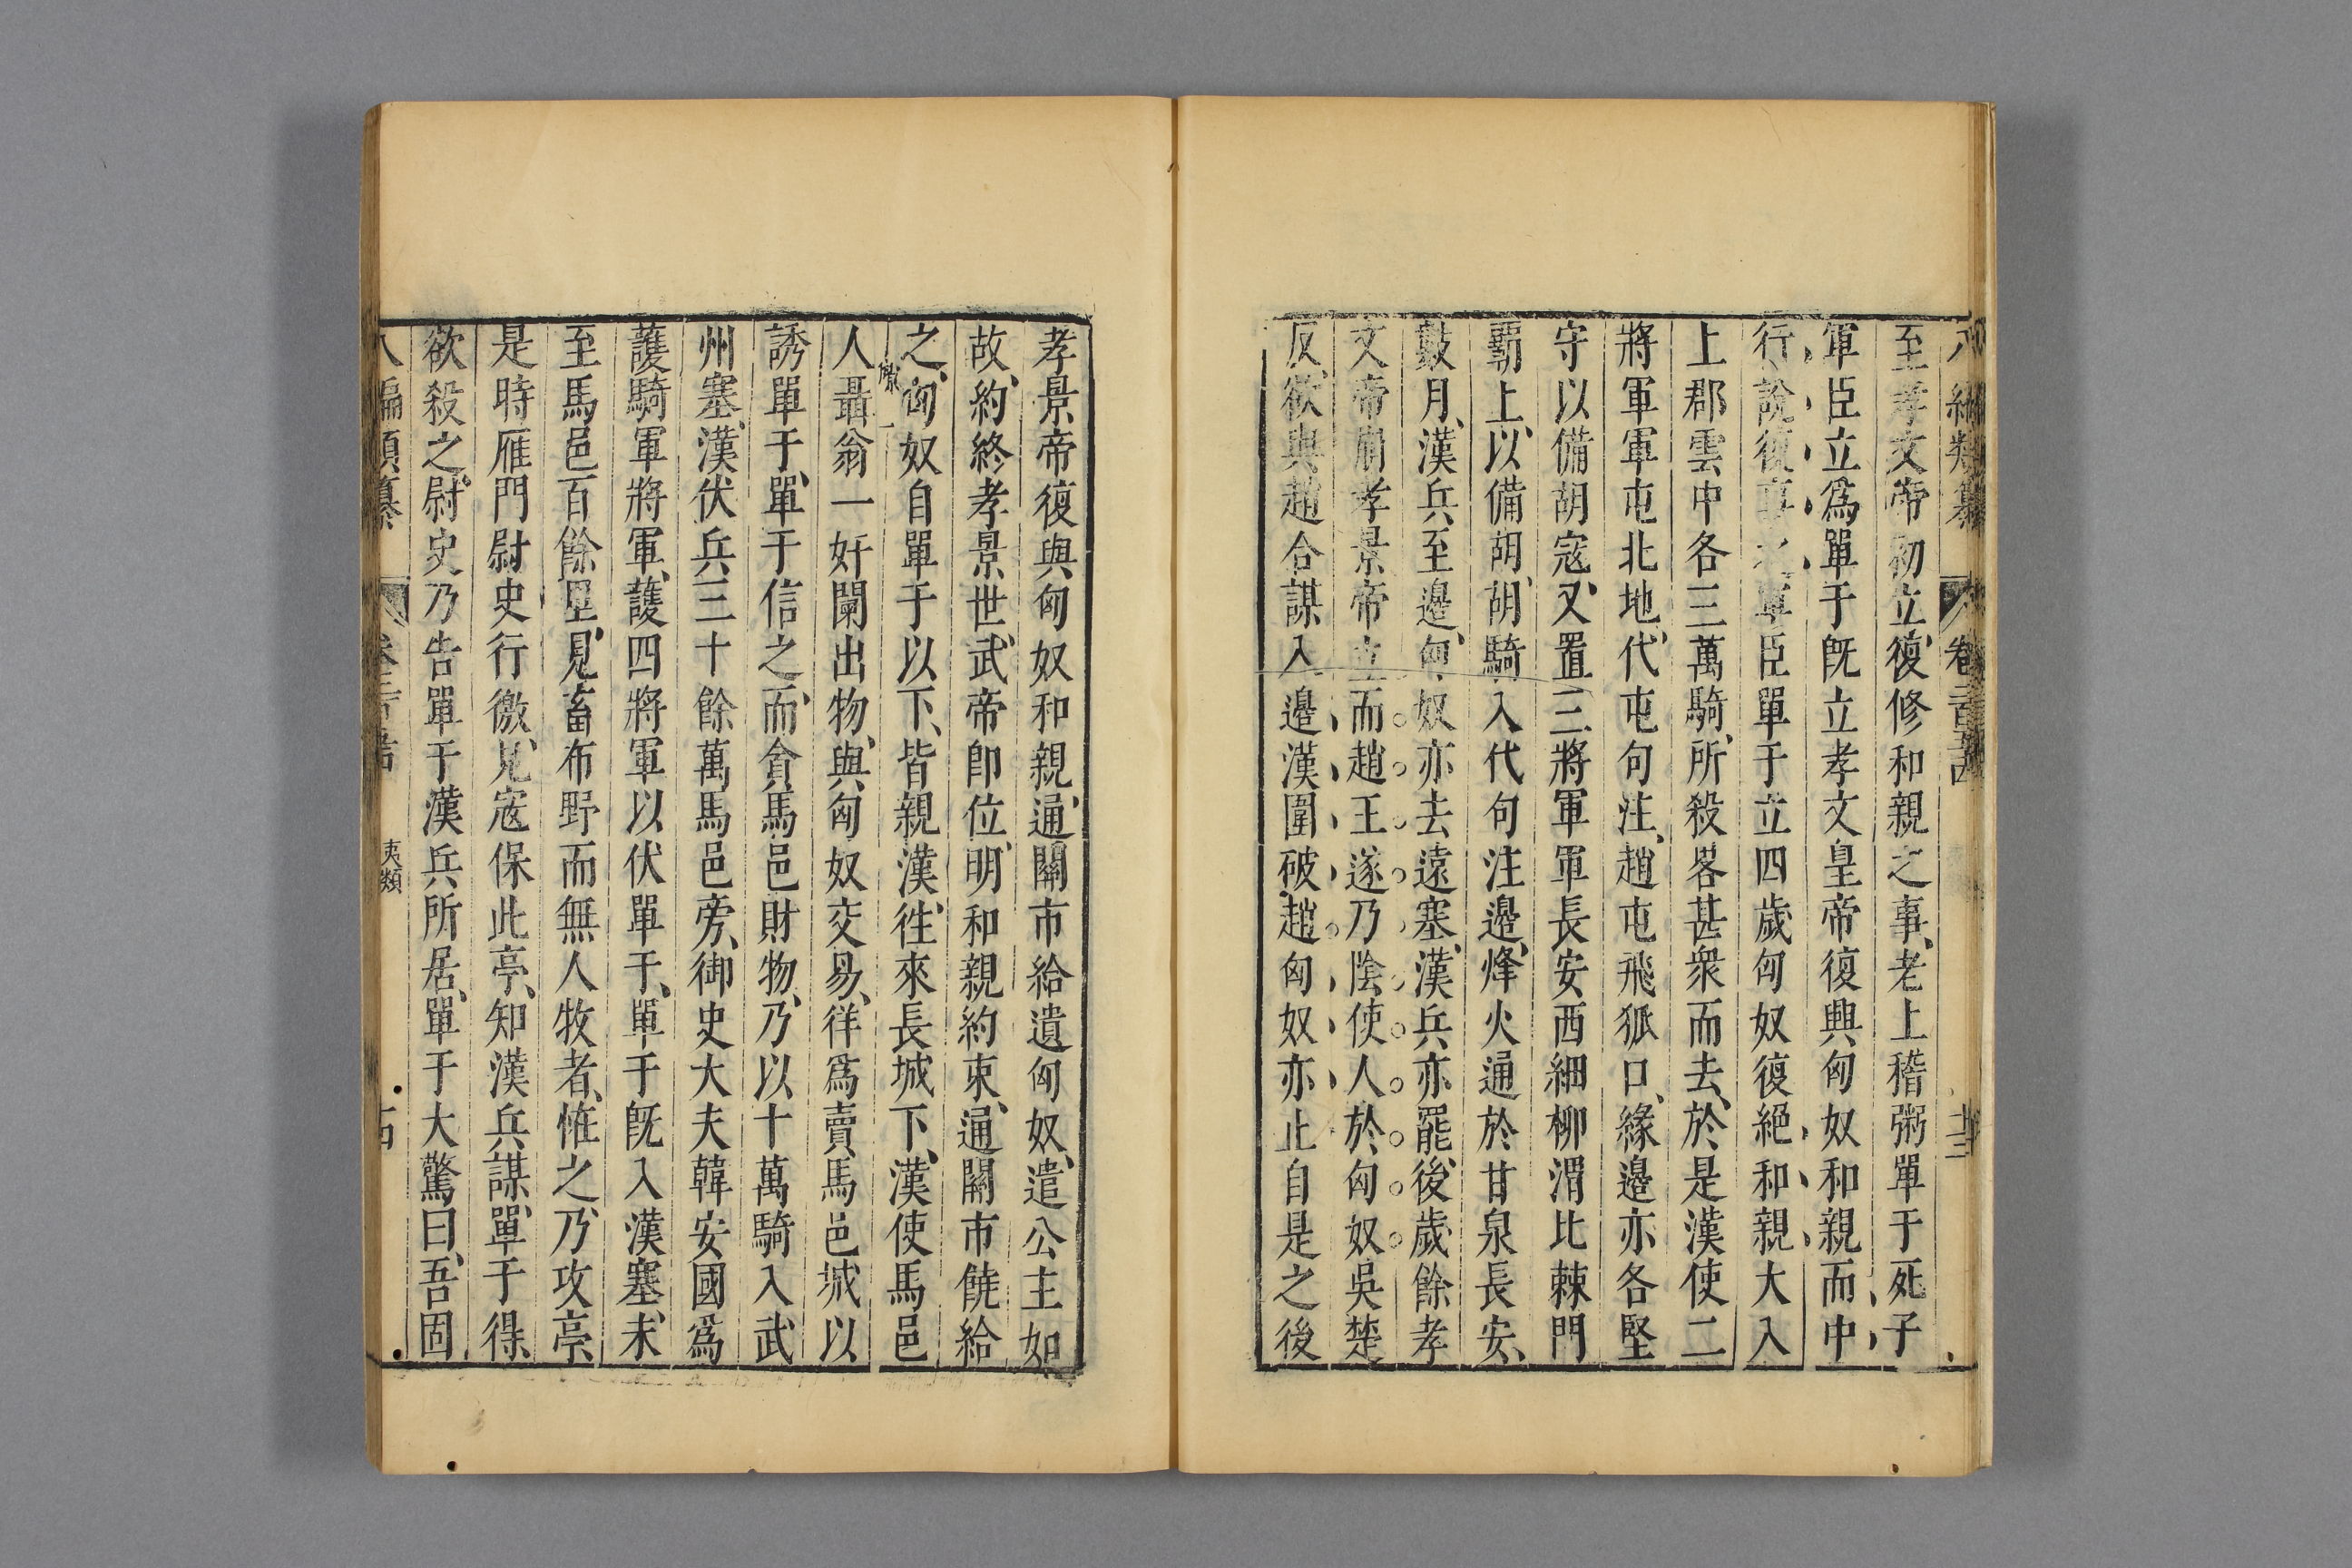 八編類纂 卷二百五十四 十三
至孝文帝初立、復修和親之事、老上稽粥單于死子
軍臣立爲單于既立孝文皇帝復與匈奴和親而中
行說復事之軍臣單于立四歲匈奴復絕和親大入
上郡雲中各三萬騎、所殺畧甚衆而去、於是漢使二
將軍軍屯北地、代屯句注、趙屯飛狐口、緣邊亦各堅
守以備胡寇、又置三將軍軍長安西細柳渭北棘門
霸上、以備胡、胡騎入代句注邊、烽火通於甘泉長安、
數月、漢兵至邊、匈奴亦去遠塞、漢兵亦罷、後歲餘孝
文帝崩孝景帝立而趙王遂乃陰使人於匈奴吳楚
反、欲與趙合謀入邊漢圍破趙匈奴亦止自是之後
孝景帝復與匈奴和親、通關市給遺匈奴、遣公主如
故、約終孝景世、武帝即位、明和親約束、通關市饒給
之、匈奴自單于以下、皆親漢、往來長城下、漢使馬邑
人聶翁一奸闌出物、與匈奴交易、佯爲賣馬邑城以
誘單于、單于信之、而貪馬邑財物、乃以十萬騎入武
州塞、漢伏兵三十餘萬馬邑旁、御史大夫韓安國爲
護騎軍將軍、護四將軍以伏單于、單于既入漢塞、未
至馬邑百餘里、見畜布野而無人牧者、恠之、乃攻亭、
是時雁門尉史行徼、見寇保此亭、知漢兵謀、單于得
欲殺之、尉史乃告單于漢兵所居、單于大驚曰、吾固
八編類纂 夷類 十四